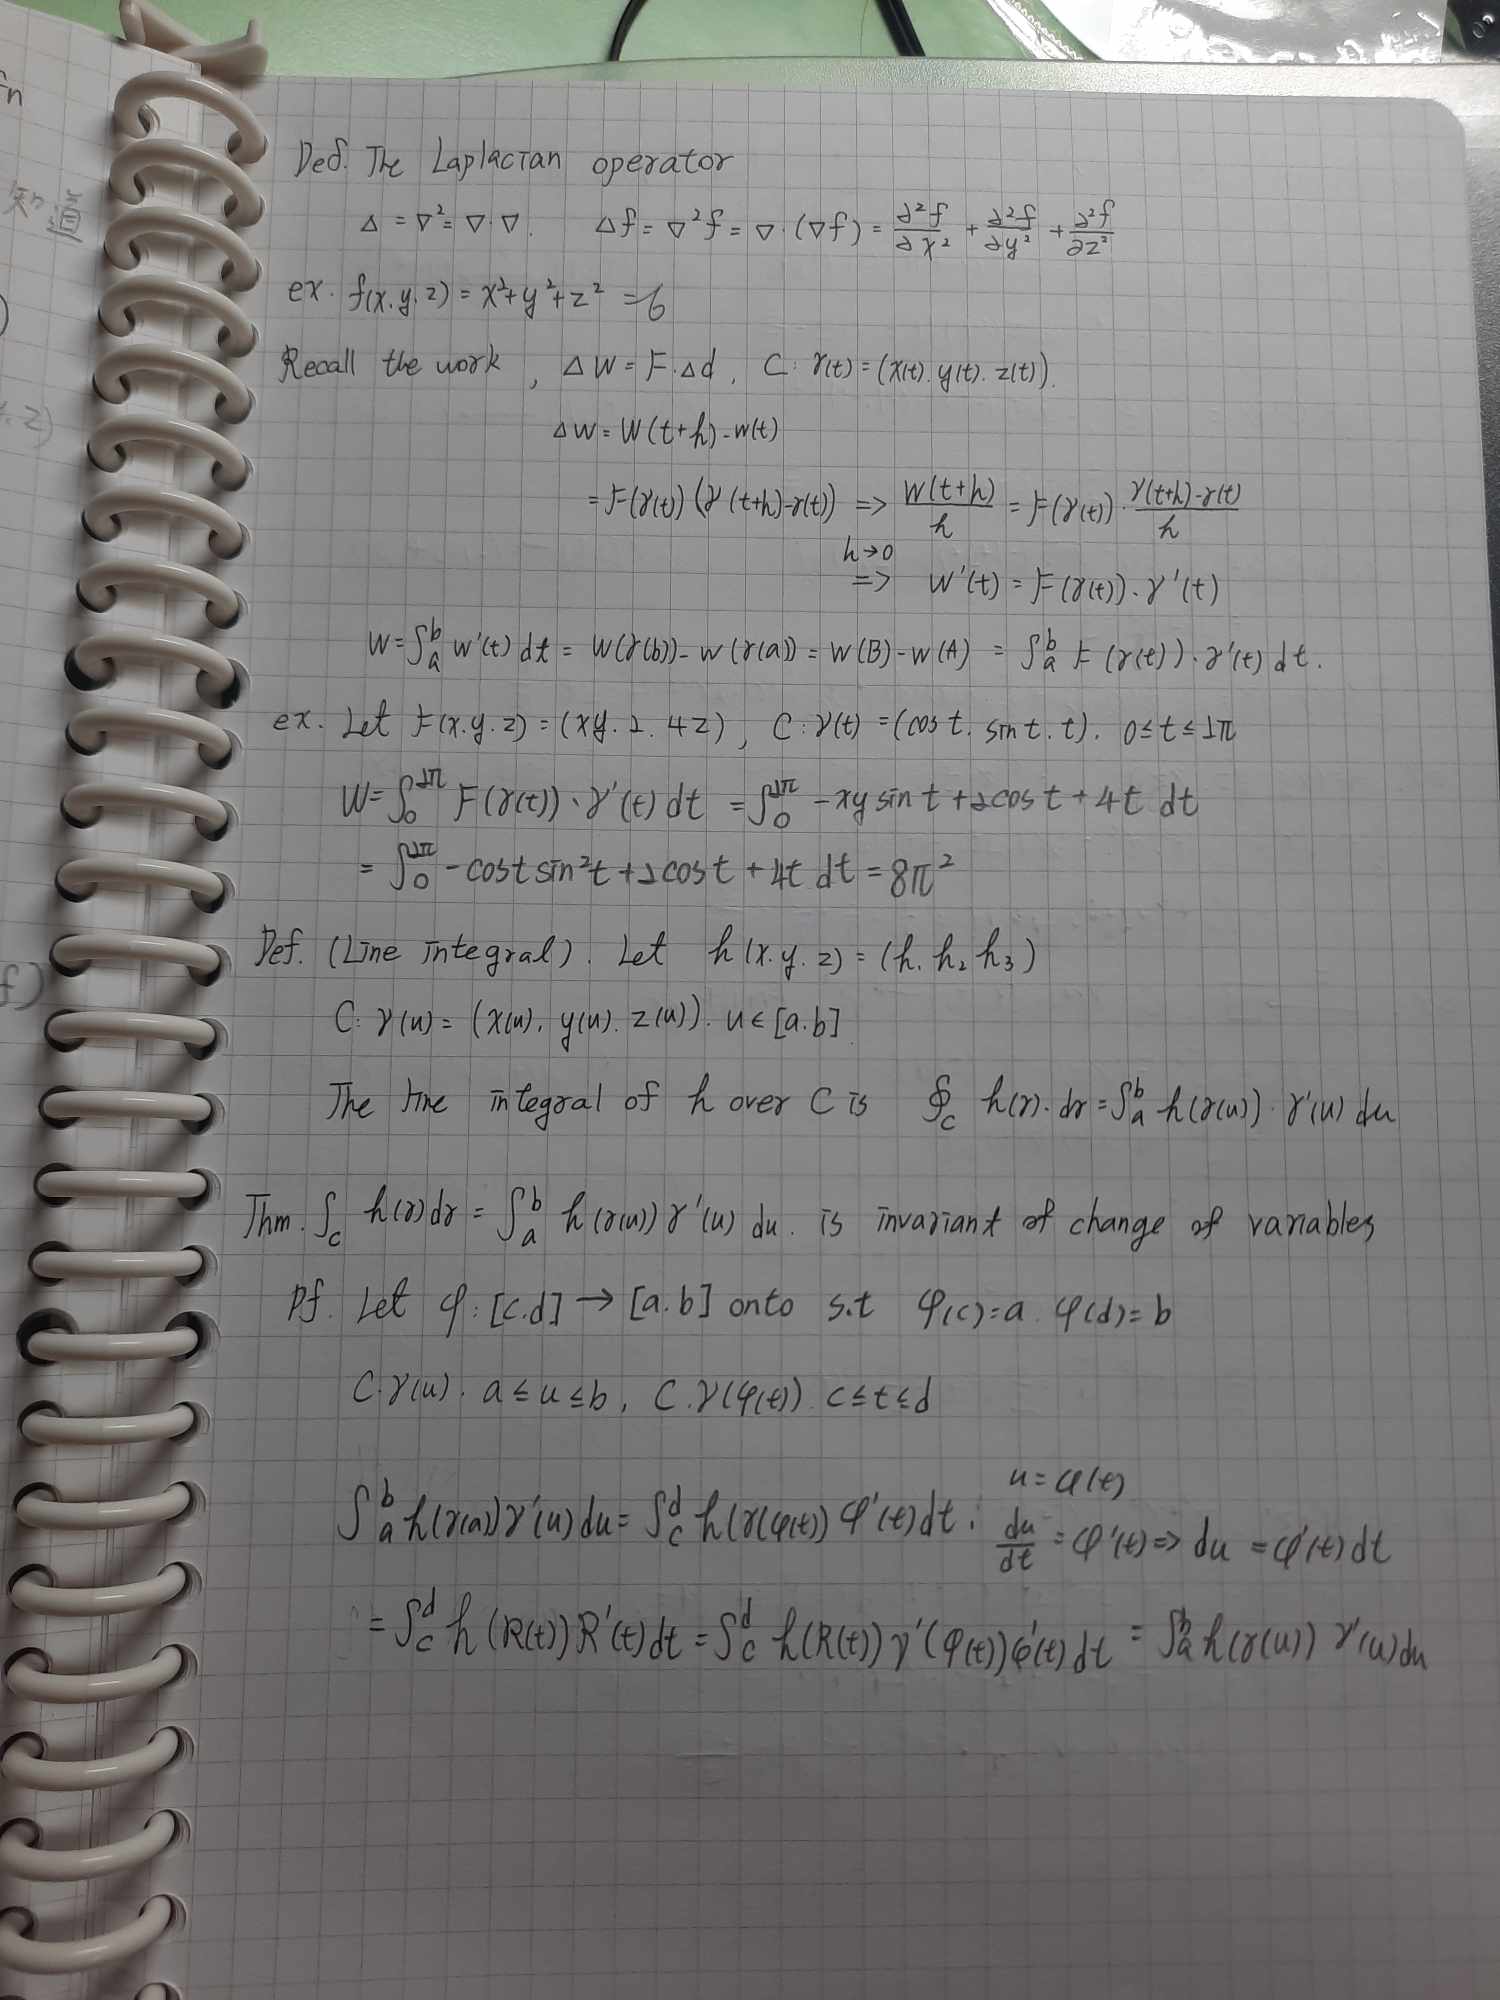 Def. The Laplacian operator
Δ = ∇² = ∇·∇. Δf = ∇²f = ∇·(∇f) = ∂²f/∂x² + ∂²f/∂y² + ∂²f/∂z²
ex. f(x.y.z) = x²+y²+z² = 6
Recall the work, ΔW = F·Δd, C: r(t) = (x(t). y(t). z(t)).
ΔW = W(t+h) - w(t)
= F(r(t)) (r(t+h)-r(t)) => W(t+h)/h = F(r(t))·r(t+h)-r(t)/h
h→0 => W'(t) = F(r(t))·r'(t)
W = ∫ₐᵇ w'(t) dt = W(r(b)) - w(r(a)) = W(B) - w(A) = ∫ₐᵇ F(r(t))·r'(t) dt.
ex. Let F(x.y.z) = (xy. 2. 4z), C: r(t) = (cos t. sin t. t). 0≤t≤2π
W = ∫₀^2π F(r(t))·r'(t) dt = ∫₀^2π -xy sin t + 2cos t + 4t dt
= ∫₀^2π -cos t sin²t + 2cos t + 4t dt = 8π²
Def. (Line integral). Let h(x.y.z) = (h₁ h₂ h₃)
C: r(u) = (x(u), y(u). z(u)). u∈[a.b]
The line integral of h over C is ∮_C h(r)·dr = ∫ₐᵇ h(r(u))·r'(u) du
Thm. ∫_C h(r)dr = ∫ₐᵇ h(r(u)) r'(u) du. is invariant of change of variables
Pf. Let φ: [c.d] → [a.b] onto s.t φ(c)=a. φ(d)=b
C. r(u). a≤u≤b, C. r(φ(t)). c≤t≤d
u = φ(t)
∫ₐᵇ h(r(a)) r'(u) du = ∫_c^d h(r(φ(t)) φ'(t) dt. du/dt = φ'(t) => du = φ'(t) dt
= ∫_c^d h(R(t)) R'(t) dt = ∫_c^d h(R(t)) r'(φ(t)) φ'(t) dt = ∫ₐᵇ h(r(u)) r'(u) du
知道